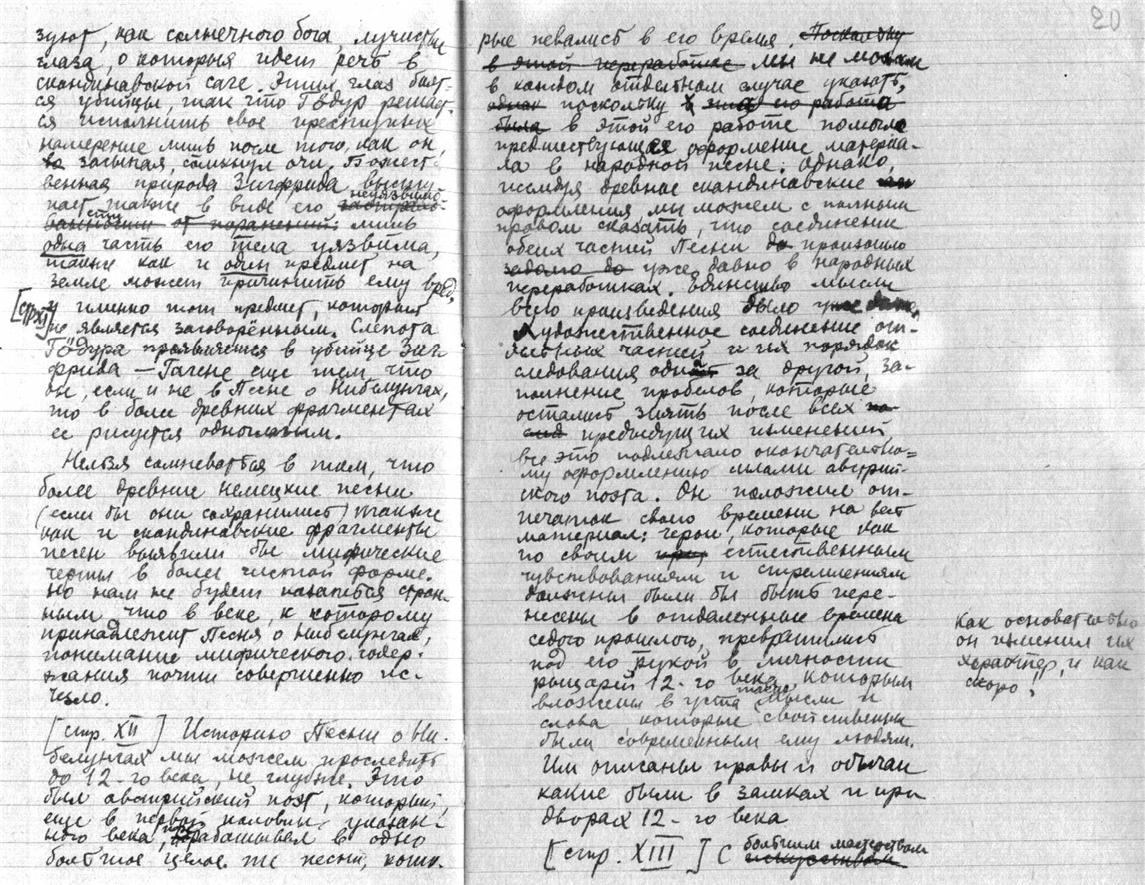 зуют, как солнечного бога, лучистые
глаза, о которых идет речь в
скандинавской саге. Этих глаз боит-
ся убийца, так что Гёдур решает-
ся исполнить свое преступных
намерение лишь после того, как он,
засыпая, сомкнул очи. Божест-
венная природа Зигфрида высту-
пает также в виде его неуязвимо
сти лишь
одна часть его тела уязвима,
также как и один предмет на
земле может причинить ему вред,
[стр XI] и именно тот предмет, который
не является заговорённым. Слепота
Гёдура проявляется в убийце Зиг-
фрида — Гагене еще тем, что
он, если и не в Песне о Нибелунгах,
то в более древних фрагментах
ее рисуется одноглазым.
Нельзя сомневаться в том, что
более древние немецкие песни
(если бы они сохранились) также
как и скандинавские фрагменты
песен выявили бы мифические
черты в более чистой форме.
Но нам не будет казаться стран-
ным что в веке, к которому
принадлежит Песня о Нибелунгах,
понимание мифического содер-
жания почти совершенно ис-
чезло.
[стр. XII] Историю Песни о Ни-
белунгах мы можем проследить
до 12-го века, не глубже. Это
был австрийский поэт, который,
еще в первой половине указан-
ного века, перерабатывал в одно
большое целое те песни, кото-
20
рые певались в его время. Поскольку
в этой переработке мы не можем
в каждом отдельном случае указать,
однак поскольку его работа
была в этой его работе помогло
предшествующее оформление материа-
ла в народной песне: однако,
исследуя древние скандинавские
оформления, мы можем с полным
правом сказать, что соединение
обеих частей Песни до произошло
задолго до уже давно в народных
переработках. единство мысли
всего произведения было уже дано,
Художественное соединение от-
дельных частей и их порядок
следования одной за другой, за-
полнение пробелов, которые
остались зиять после всех
предыдущих изменений,
все это подлежало окончательно-
му оформлению силами австрий-
ского поэта. Он положил от-
печаток своего времени на весь
материал: герои, которые как
по своим естественным
чувствованиям и стремлениям
должны были бы быть пере-
несены в отдаленные времена
седого прошлого, превратились
под его рукой в личности
рыцарей 12-го века, которым
вложены в уста такие мысли и
слова которые свойственны
были современным ему людям.
Им описаны нравы и обычаи
какие были в замках и при
дворах 12-го века
[стр. XIII] С большим мастерством
искусством
Как основательно
он изменил их
характер, и как
скоро!